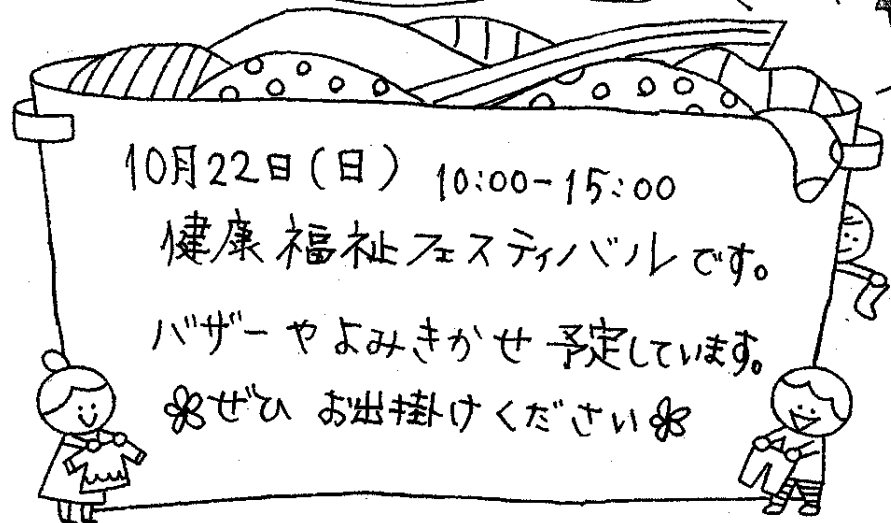 10月22日(日) 10:00-15:00
健康福祉フェスティバルです。
バザーやよみきかせ予定しています。
ぜひ お出掛けください